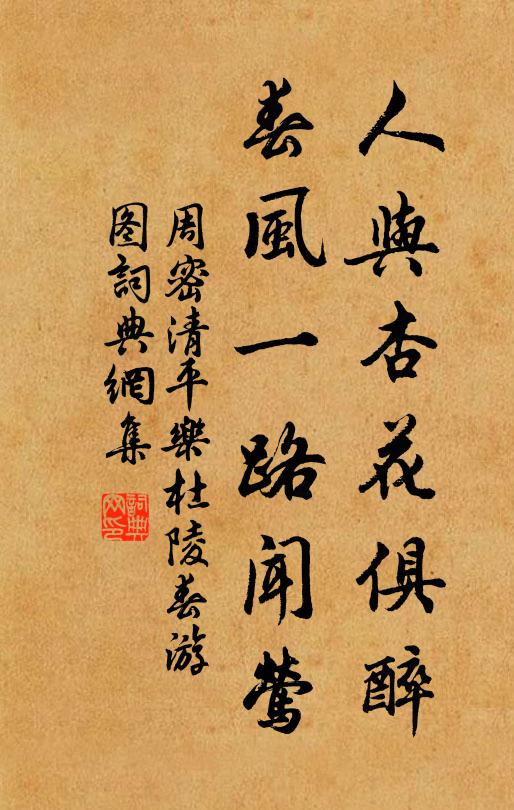 人與杏花俱醉
春風一路闻鶯
周密清平樂杜陵春游
图詞典網集